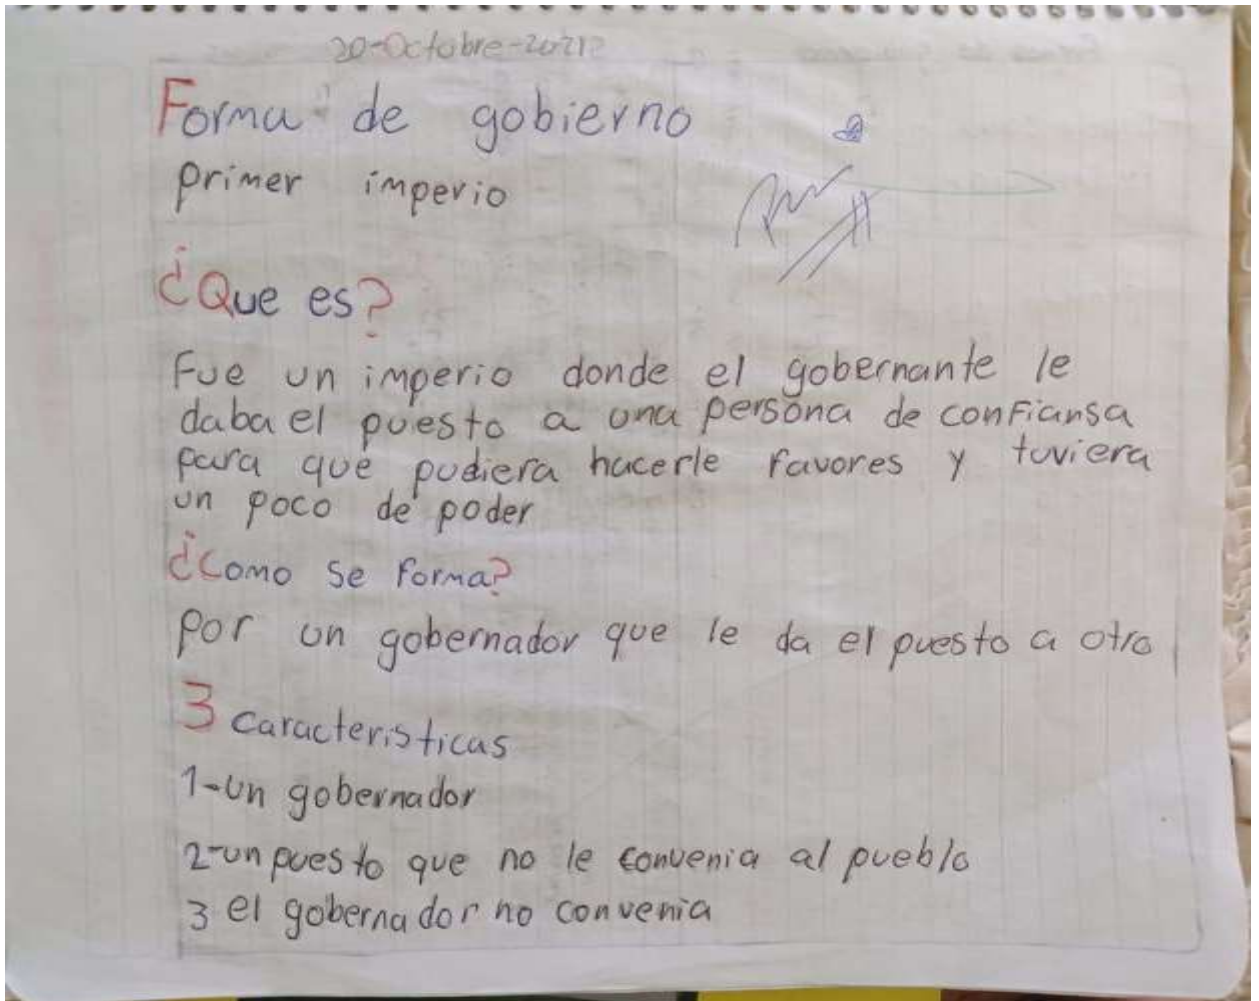 20-Octubre-2021
Forma de gobierno
primer imperio
¿Que es?
Fue un imperio donde el gobernante le
daba el puesto a una persona de confiansa
para que pudiera hacerle favores y tuviera
un poco de poder
¿Como se forma?
por un gobernador que le da el puesto a otro
3 caracteristicas
1-un gobernador
2-un puesto que no le convenia al pueblo
3 el gobernador no convenia